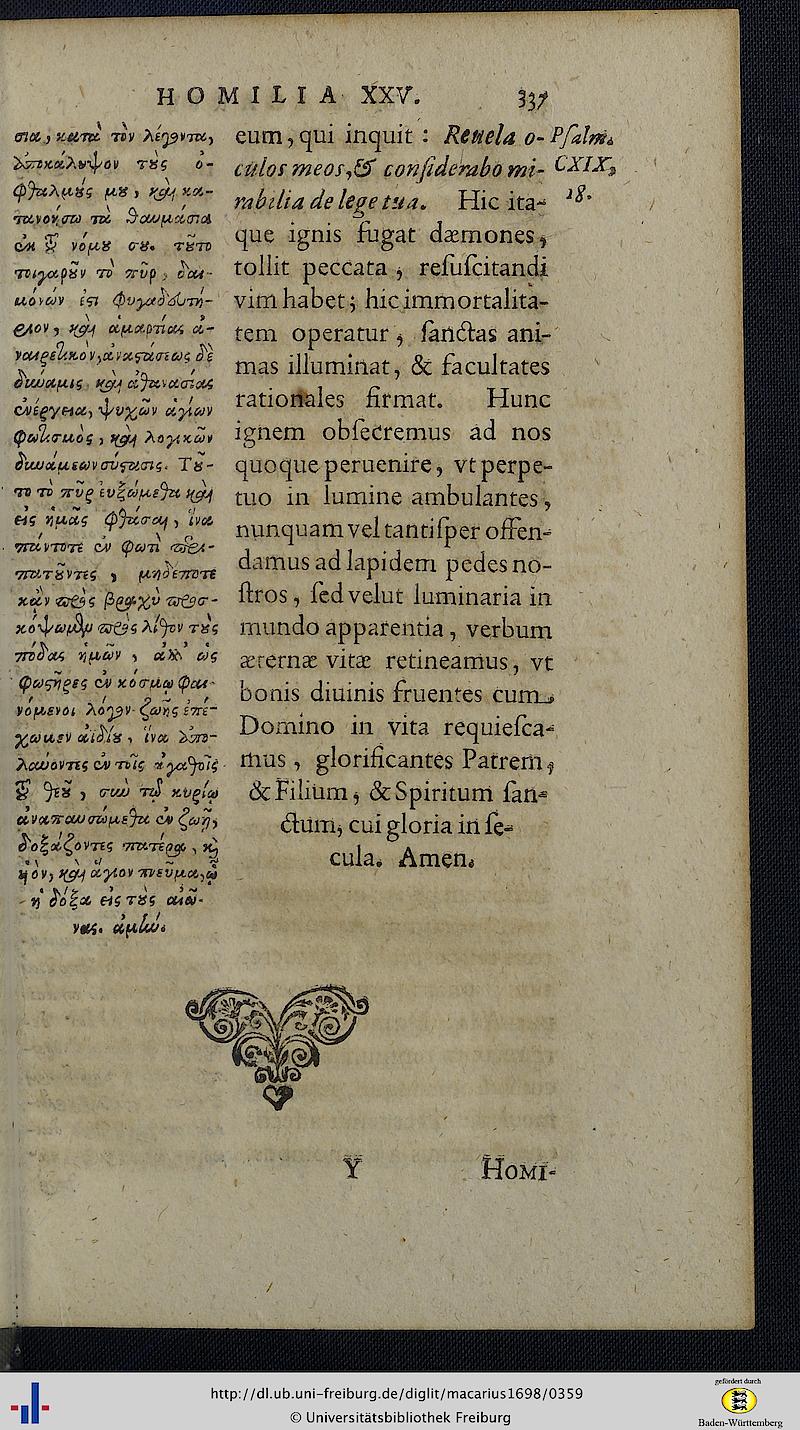 HOMILIA XXV. 337
σια, κατὰ τὸν λέγοντα,
ἀποκάλυψον τοὺς ὀ-
φθαλμούς μου, καὶ κα-
τανοήσω τὰ θαυμάσια
ἐκ τοῦ νόμου σου. τοῦτο
τοιγαροῦν τὸ πῦρ, δαι-
μόνων ἐστὶ φυγαδευτή-
ριον, καὶ ἁμαρτίας ἀ-
ναιρετικὸν, ἀναστάσεως δὲ
δύναμις, καὶ ἀθανασίας
ἐνέργεια, ψυχῶν ἁγίων
φωτισμὸς, καὶ λογικῶν
δυνάμεων σύστασις. Τοῦ-
το τὸ πῦρ εὐξώμεθα καὶ
εἰς ἡμᾶς φθάσαι, ἵνα
πάντοτε ἐν φωτὶ περι-
πατοῦντες, μηδέποτε
κἂν πρὸς βραχὺ προσ-
κόψωμεν πρὸς λίθον τοὺς
πόδας ἡμῶν, ἀλλ' ὡς
φωστῆρες ἐν κόσμῳ φαι-
νόμενοι λόγον ζωῆς ἐπέ-
χωμεν ἀϊδίου, ἵνα ἀπο-
λαύοντες ἐν τοῖς ἀγαθοῖς
τοῦ θεοῦ, σὺν τῷ κυρίῳ
ἀναπαυσώμεθα ἐν ζωῇ,
δοξάζοντες πατέρα, καὶ
υἱὸν, καὶ ἅγιον πνεῦμα, ᾧ
ἡ δόξα εἰς τοὺς αἰῶ-
νας. ἀμήν.
eum, qui inquit: Reuela o-
culos meos, & considerabo mi-
rabilia de lege tua. Hic ita-
que ignis fugat dæmones,
tollit peccata, resuſcitandi
vim habet; hic immortalita-
tem operatur, ſanctas ani-
mas illuminat, & facultates
rationales firmat. Hunc
ignem obſecremus ad nos
quoque peruenire, vt perpe-
tuo in lumine ambulantes,
nunquam vel tantiſper offen-
damus ad lapidem pedes no-
ſtros, ſed velut luminaria in
mundo apparentia, verbum
æternæ vitæ retineamus, vt
bonis diuinis fruentes cum
Domino in vita requieſca-
mus, glorificantes Patrem,
& Filium, & Spiritum ſan-
ctum, cui gloria in ſe-
cula. Amen.
Pſalm.
CXIX,
18.
Y HOMI-
http://dl.ub.uni-freiburg.de/diglit/macarius1698/0359
© Universitätsbibliothek Freiburg
gefördert durch
Baden-Württemberg